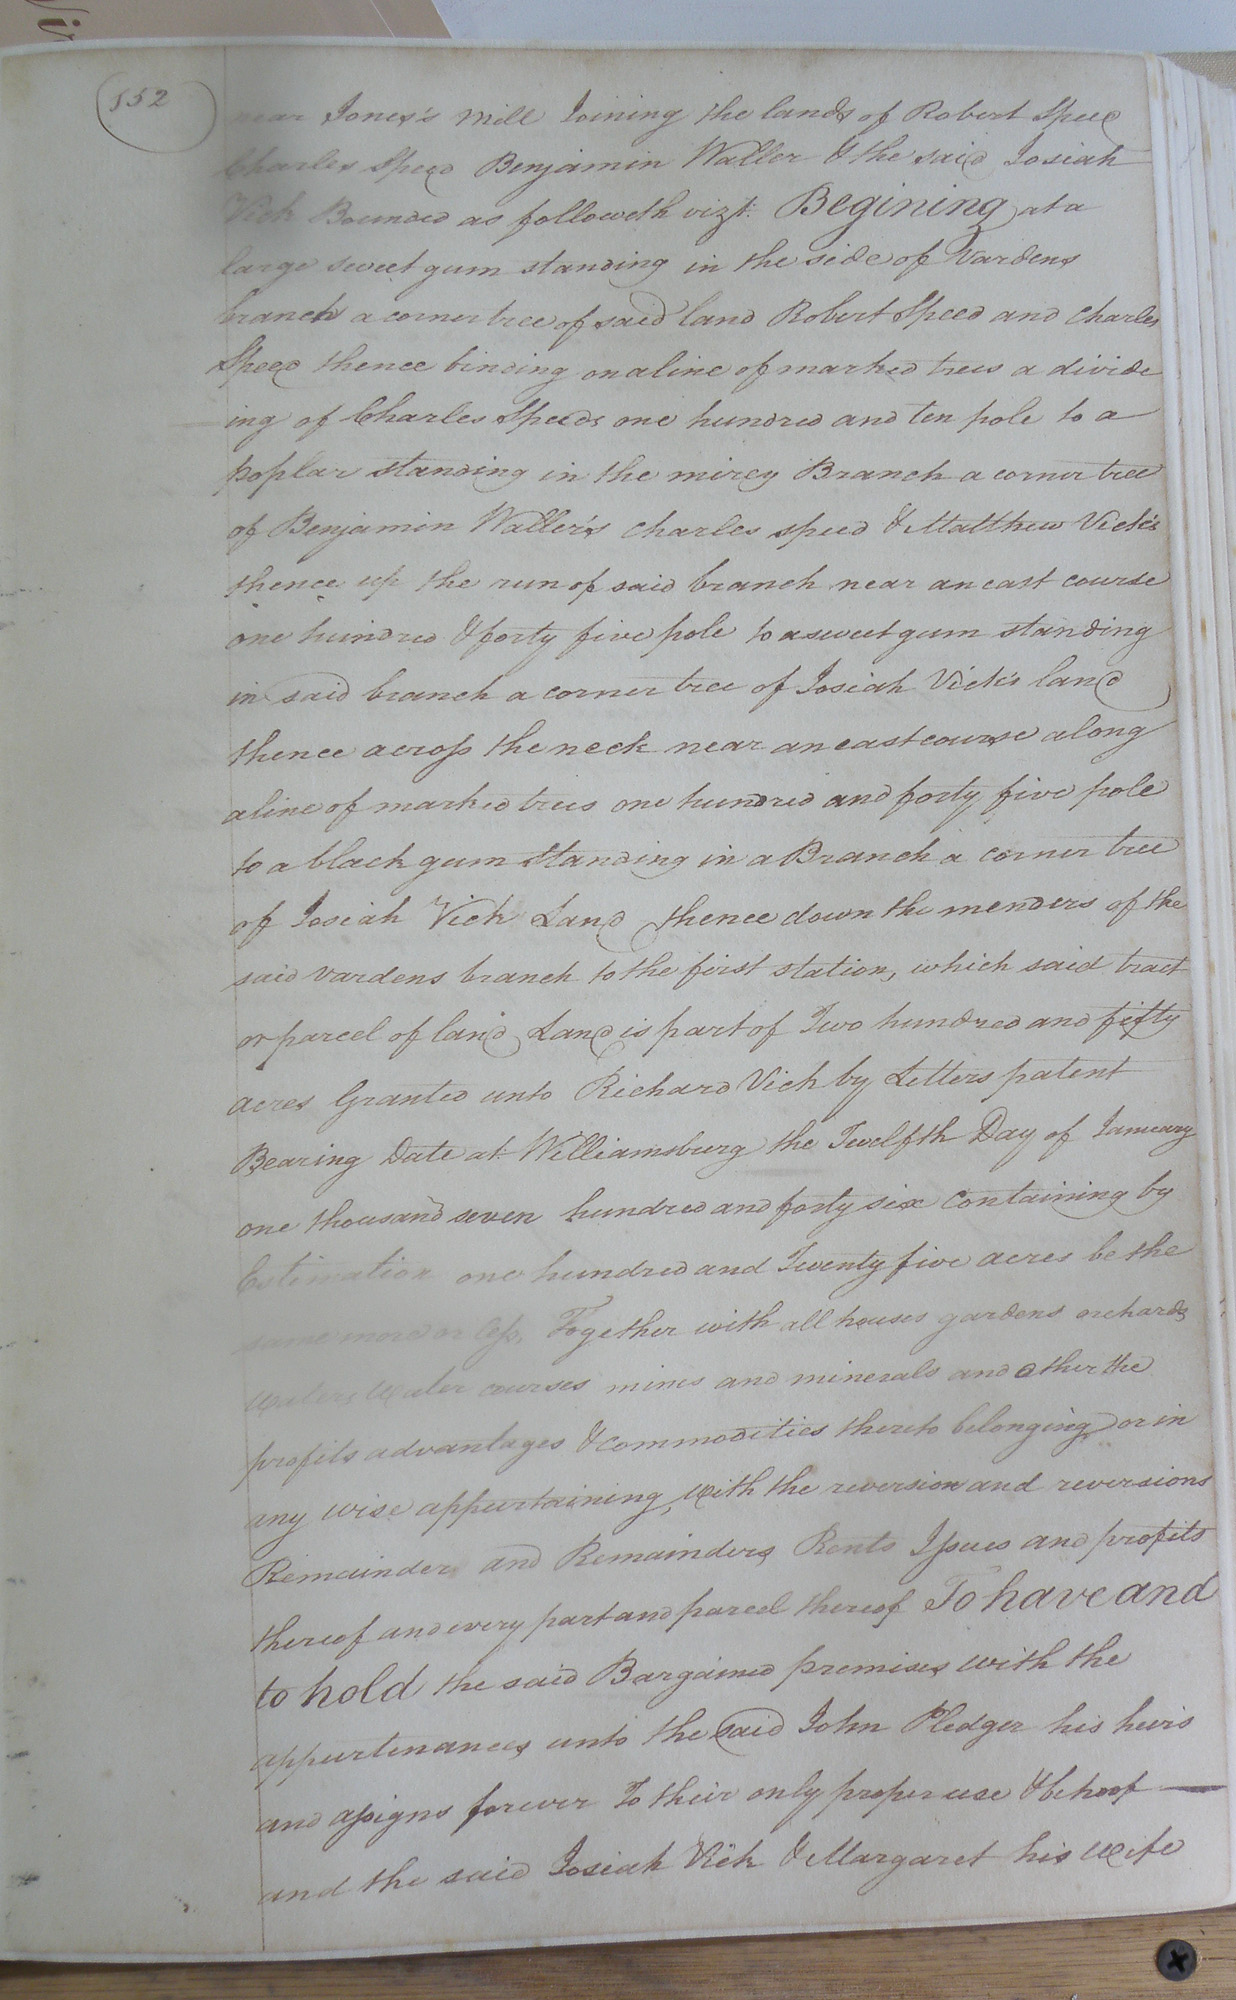 552
near Jones's Mill Joining the lands of Robert Speed
Charles Speed Benjamin Waller & the said Josiah
Vick Bounded as followeth vizt. Begining at a
large sweet gum standing in the side of Vardens
branch a corner tree of said land Robert Speed and Charles
Speed thence binding on a line of marked trees a divide
ing of Charles Speeds one hundred and ten pole to a
poplar standing in the mirey Branch a corner tree
of Benjamin Waller's Charles Speed & Matthew Vick's
thence up the run of said branch near an east course
one hundred & forty five pole to a sweet gum standing
in said branch a corner tree of Josiah Vick's land
thence across the neck near an east course along
a line of marked trees one hundred and forty five pole
to a black gum standing in a Branch a corner tree
of Josiah Vick Land thence down the menders of the
said vardens branch to the first station, which said tract
or parcel of land Land is part of Two hundred and fifty
acres Granted unto Richard Vick by Letters patent
Bearing Date at Williamsburg the Twelfth Day of January
one thousand seven hundred and forty six Containing by
Estimation one hundred and Twenty five acres be the
same more or less, Together with all houses gardens orchards
waters, water courses mines and minerals and other the
profits advantages & commodities thereto belonging or in
any wise appurtaining, with the reversion and reversions
Remainder and Remainders Rents Issues and profits
thereof and every part and parcel thereof To have and
to hold the said Bargained premises with the
appurtenances unto the said John Pledger his heirs
and assigns forever To their only proper use & behoof
and the said Josiah Vick & Margaret his wife